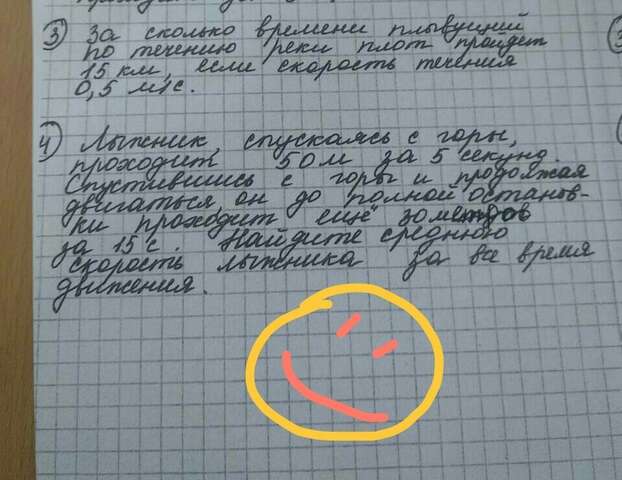 ③ За сколько времени плывущий
по течению реки плот пройдет
15 км, если скорость течения
0,5 м/с.
④ Лыжник, спускаясь с горы,
проходит 50м за 5 секунд.
Спустившись с горы и продолжая
двигаться, он до полной останов-
ки проходит ещё 30метров
за 15 с. Найдите среднюю
скорость лыжника за все время
движения.